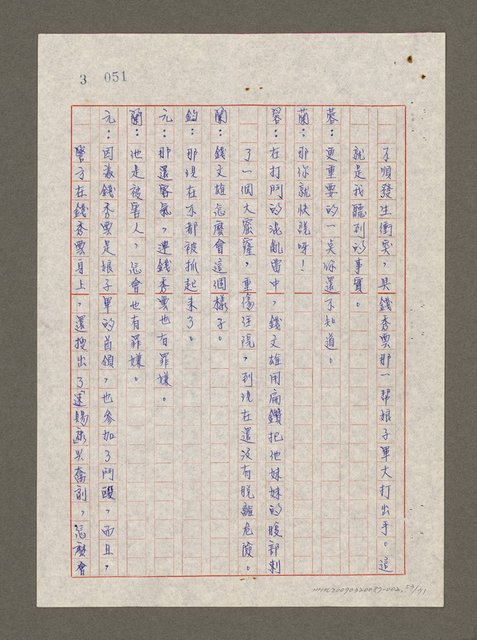 3 051
了順發生衝突，與錢秀雲那一幫娘子軍大打出手。這
就是我聽到的事實。
蓉：更重要的一矣你還不知道。
蘭：那你就快說呀！
蓉：在打鬥的混亂當中，錢文雄用扁鑽把他妹妹的腹部刺
了一個大窟窿，重傷住院，到現在還沒有脫離危險。
蘭：錢文雄怎麼會這個樣子。
鈞：那現在不都被抓起來了。
元：那還客氣，連錢秀雲也有罪嫌。
蘭：她是被害人，怎會也有罪嫌。
元：因為錢秀雲是娘子軍的首領，也參加了鬥毆，而且，
警方在錢秀雲身上，還搜出了速賜康興奮劑，怎麼會